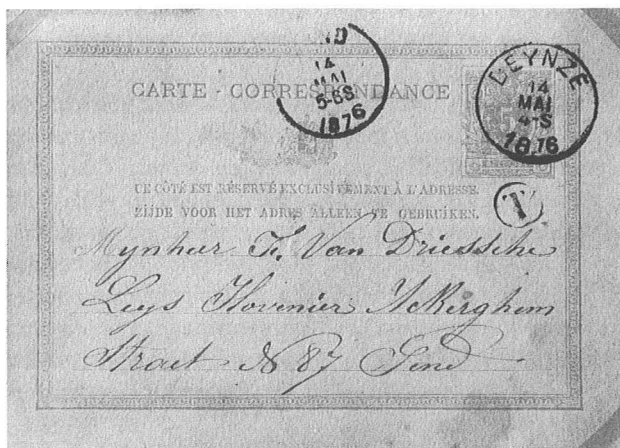 CARTE - CORRESPONDANCE
ND
14
MAI
5-6S
1876
DEYNZE
14
MAI
4-S
1876
CE CÔTÉ EST RÉSERVÉ EXCLUSIVEMENT À L'ADRESSE.
ZIJDE VOOR HET ADRES ALLEEN TE GEBRUIKEN.
T
Mynheer Van Driessche
Hovenier Ackerghem
Straet N 87 Gend